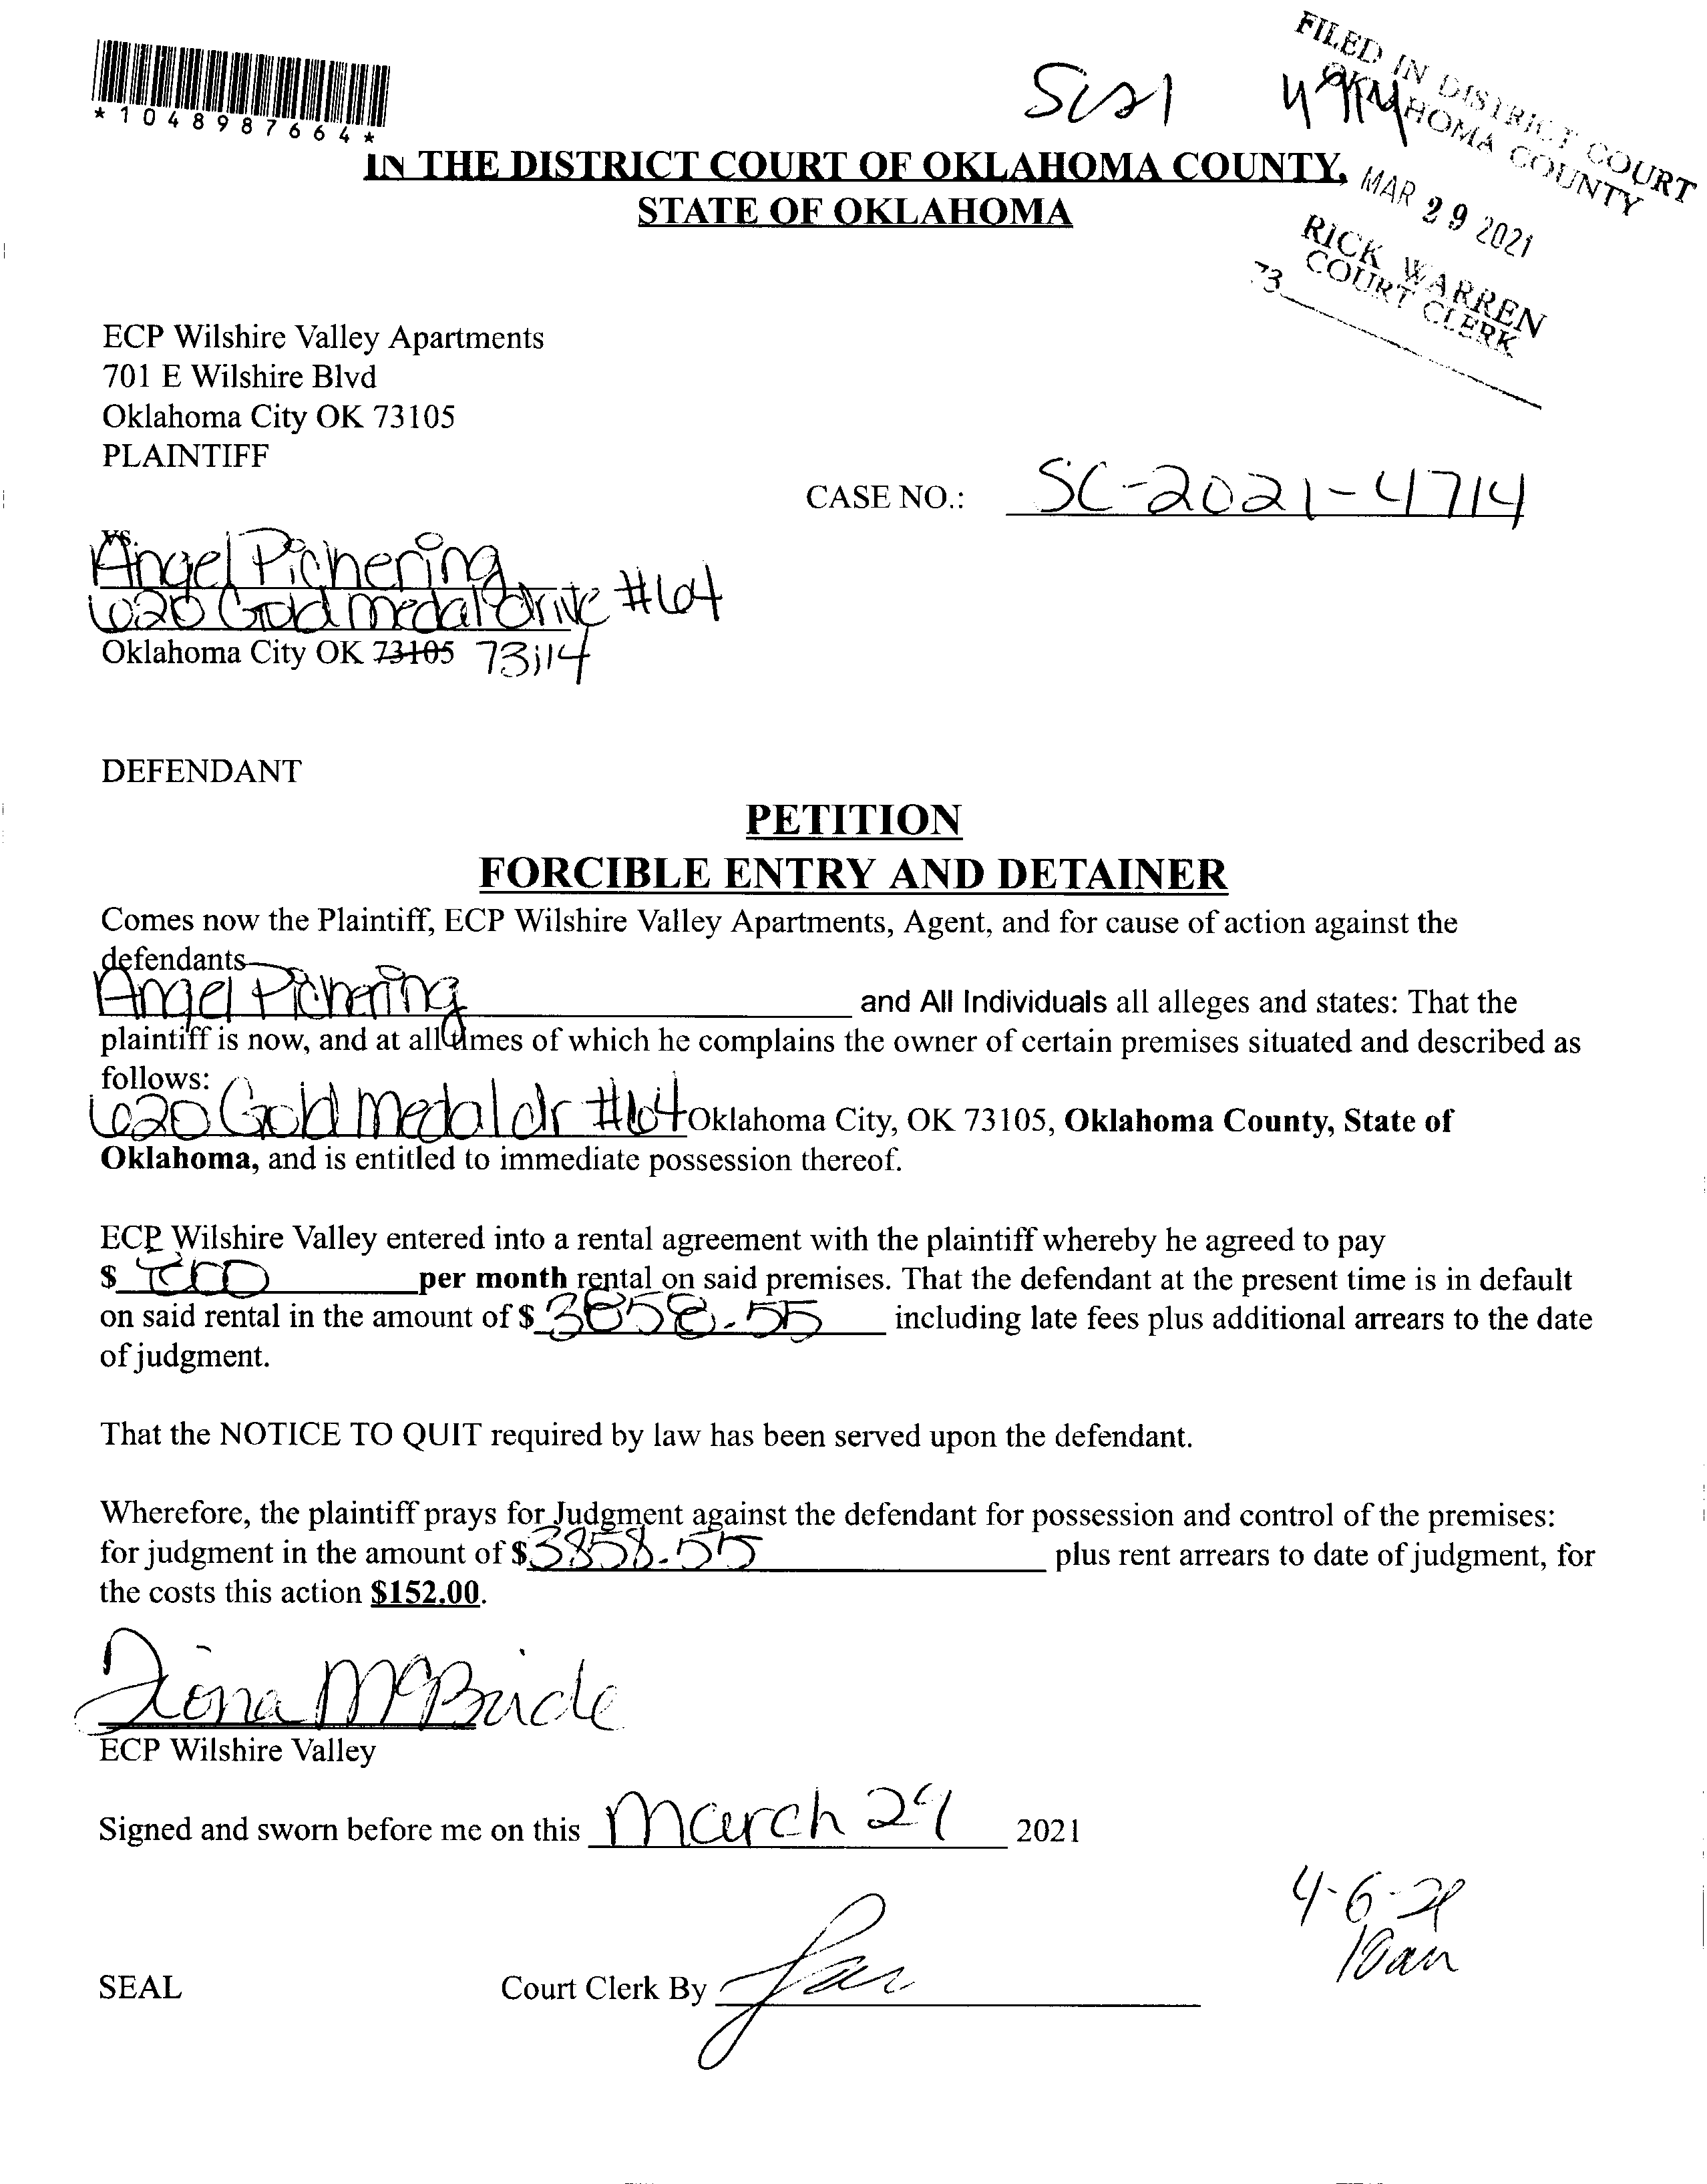 *1048987664*
FILED IN DISTRICT COURT
OKLAHOMA COUNTY
MAR 29 2021
RICK WARREN
COURT CLERK
73
IN THE DISTRICT COURT OF OKLAHOMA COUNTY,
STATE OF OKLAHOMA
ECP Wilshire Valley Apartments
701 E Wilshire Blvd
Oklahoma City OK 73105
PLAINTIFF
CASE NO.: SC-2021-4714
vs.
Angel Pichering
620 Gold medal drive #104
Oklahoma City OK 73105 73114
DEFENDANT
PETITION
FORCIBLE ENTRY AND DETAINER
Comes now the Plaintiff, ECP Wilshire Valley Apartments, Agent, and for cause of action against the
defendants
Angel Pichering and All Individuals all alleges and states: That the
plaintiff is now, and at all times of which he complains the owner of certain premises situated and described as
follows:
620 Gold Medal dr #104 Oklahoma City, OK 73105, Oklahoma County, State of
Oklahoma, and is entitled to immediate possession thereof.
ECP Wilshire Valley entered into a rental agreement with the plaintiff whereby he agreed to pay
$ per month rental on said premises. That the defendant at the present time is in default
on said rental in the amount of $ 3858.55 including late fees plus additional arrears to the date
of judgment.
That the NOTICE TO QUIT required by law has been served upon the defendant.
Wherefore, the plaintiff prays for Judgment against the defendant for possession and control of the premises:
for judgment in the amount of $ 3858.55 plus rent arrears to date of judgment, for
the costs this action $152.00.
McBride
ECP Wilshire Valley
Signed and sworn before me on this March 29 2021
4-6-21
10am
SEAL Court Clerk By